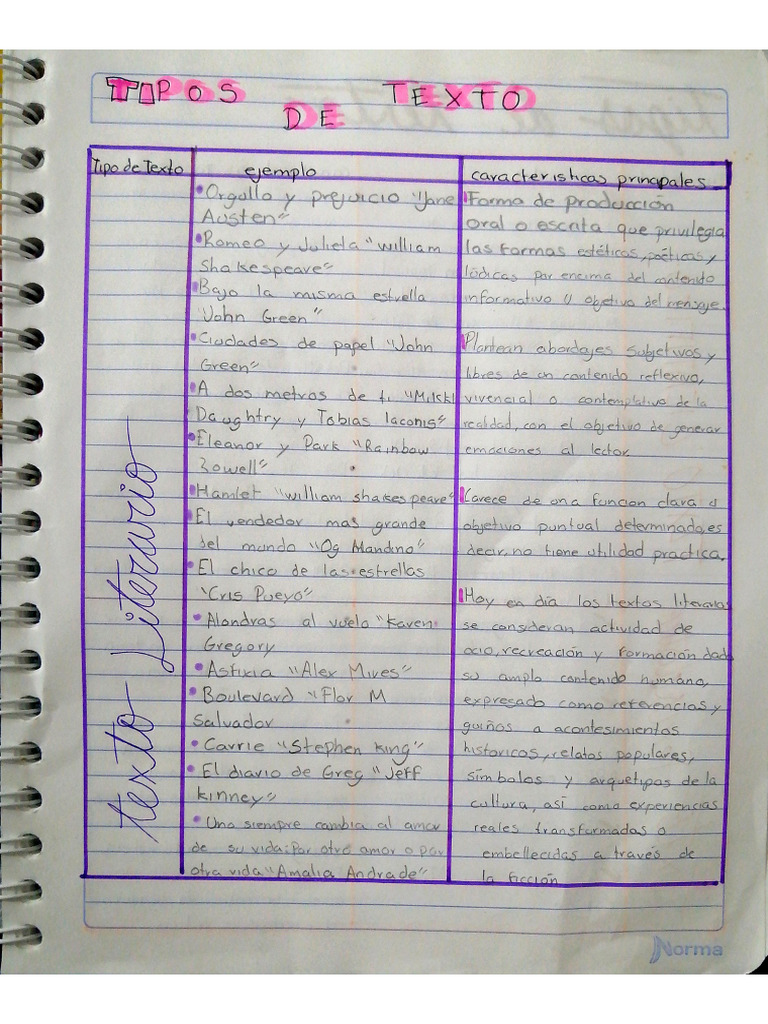 TIPOS DE TEXTO
Tipo de Texto
ejemplo
caracteristicas principales
texto Literario
• Orgullo y prejuicio "Jane
Austen"
• Romeo y Julieta "william
Shakespeave"
• Bajo la misma estrella
"John Green"
• Ciudades de papel "John
Green"
• A dos metros de ti "Mikki
Daughtry y Tobias Iaconis"
• Eleanor y Park "Rainbow
Rowell"
• Hamlet "william shakespeave"
• El vendedor mas grande
del mundo "Og Mandino"
• El chico de las estrellas
"Cris Pueyo"
• Alondras al vuelo "Karen
Gregory
• Astucia "Alex Mives"
• Boulevard "Flor M
Salvador
• Carrie "Stephen King"
• El diario de Greg "Jeff
Kinney"
• Uno siempre cambia al amor
de su vida: Por otro amor o por
otra vida "Amalia Andrade"
Forma de producción
oral o escrita que privilegia
las formas estéticas, poéticas y
lúdicas por encima del contenido
informativo u objetivo del mensaje.
Plantean abordajes subjetivos y
libres de un contenido reflexivo,
vivencial o contemplativo de la
realidad, con el objetivo de generar
emociones al lector.
Carece de una funcion clara u
objetivo puntual determinado, es
decir, no tiene utilidad practica.
Hoy en día los textos literarios
se consideran actividad de
ocio, recreación y formación dado
su amplo contenido humano,
expresado como referencias y
guiños a acontesimientos
historicos, relatos populares,
símbolos y arquetipos de la
cultura, así como experiencias
reales transformadas o
embellecidas a través de
la ficción
Norma